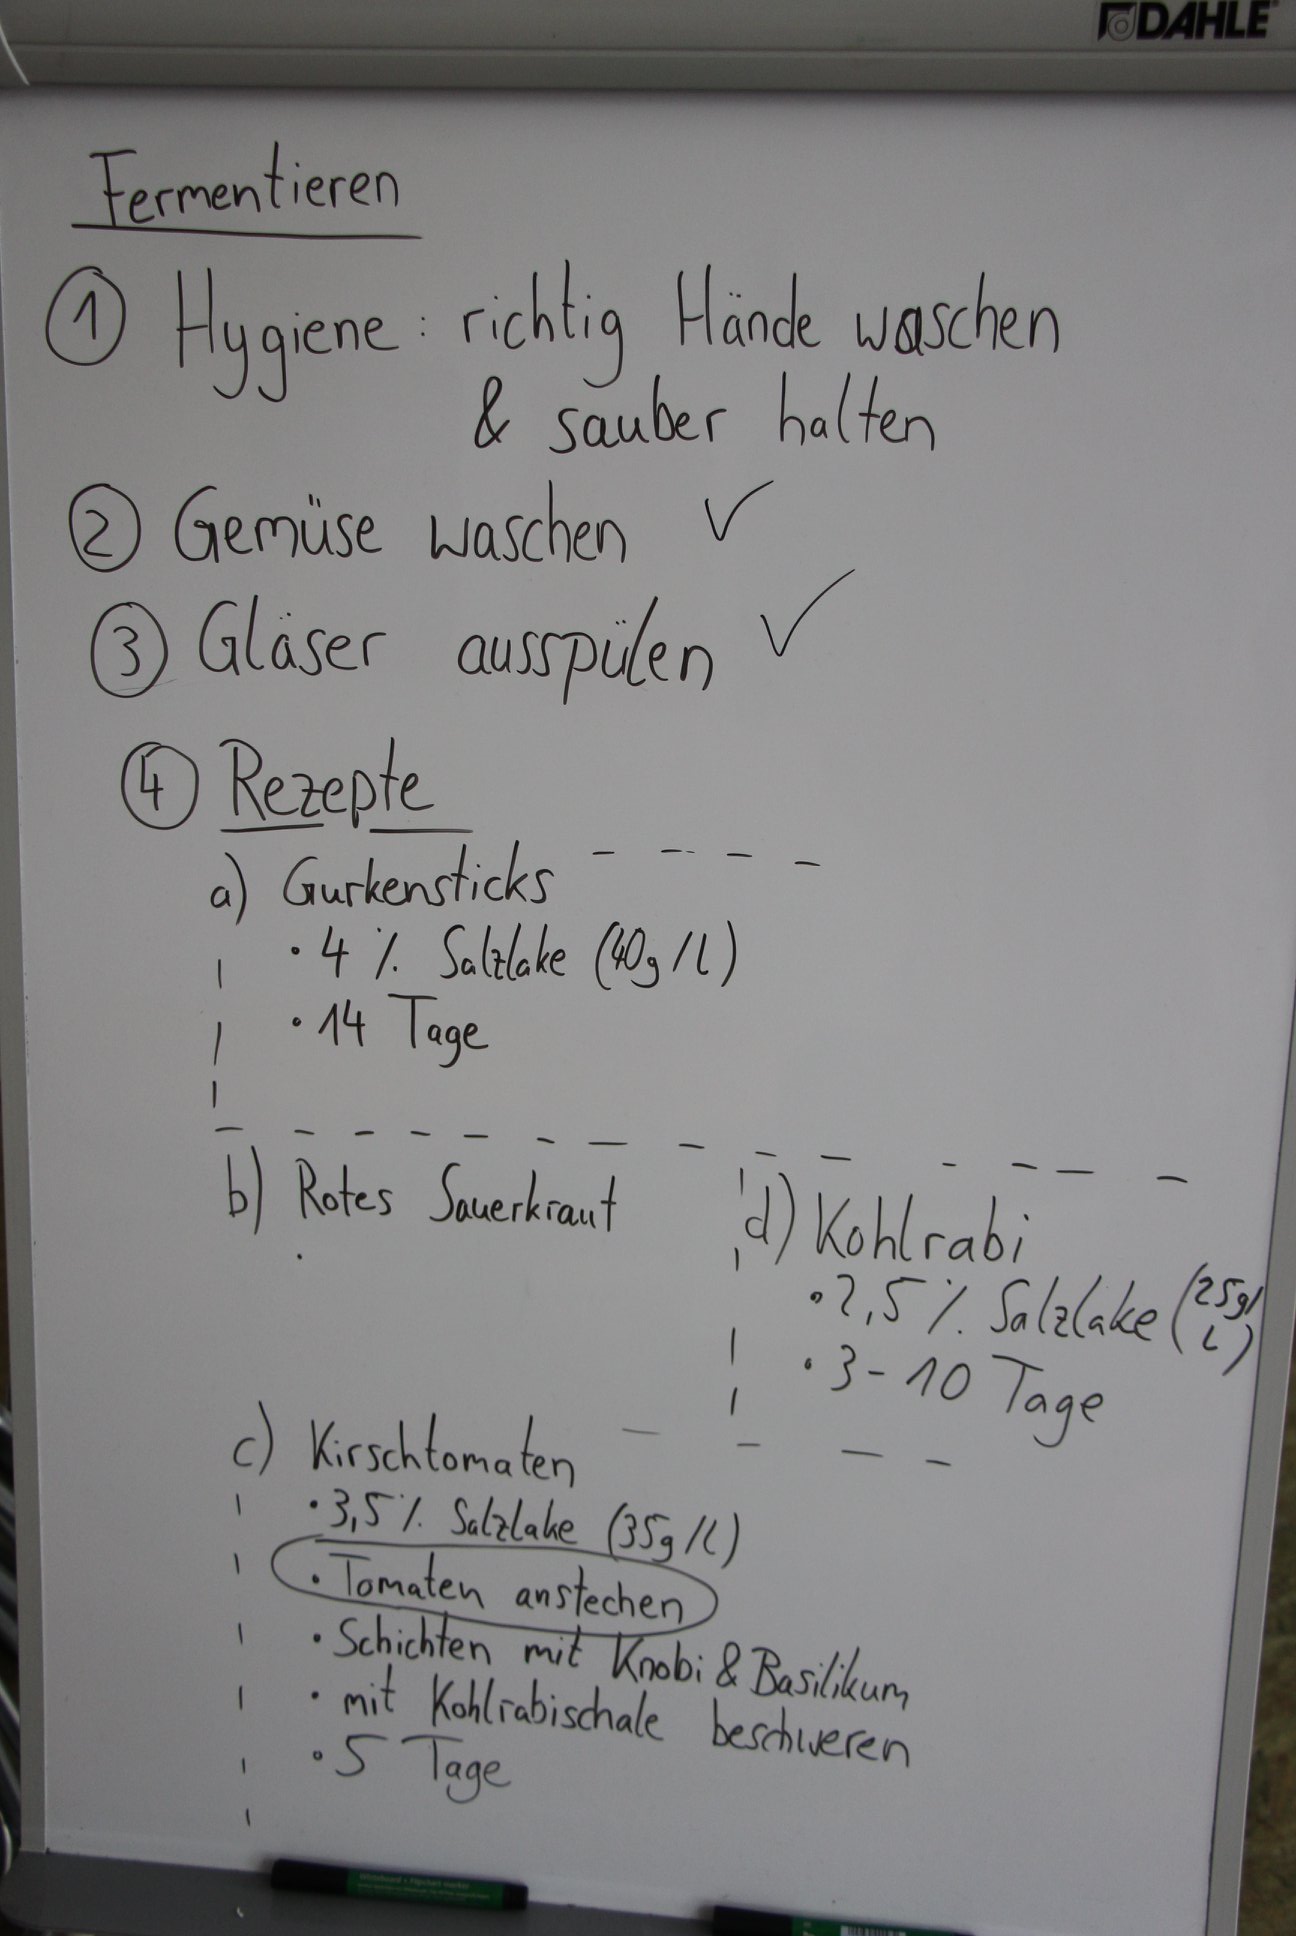 DAHLE
Fermentieren
① Hygiene: richtig Hände waschen
& sauber halten
② Gemüse waschen ✓
③ Gläser ausspülen ✓
④ Rezepte
a) Gurkensticks
• 4 % Salzlake (40g/L)
• 14 Tage
b) Rotes Sauerkraut
•
d) Kohlrabi
• 2,5 % Salzlake (25g/
L)
• 3-10 Tage
c) Kirschtomaten
• 3,5 % Salzlake (35g/L)
• Tomaten anstechen
• Schichten mit Knobi & Basilikum
• mit Kohlrabischale beschweren
• 5 Tage